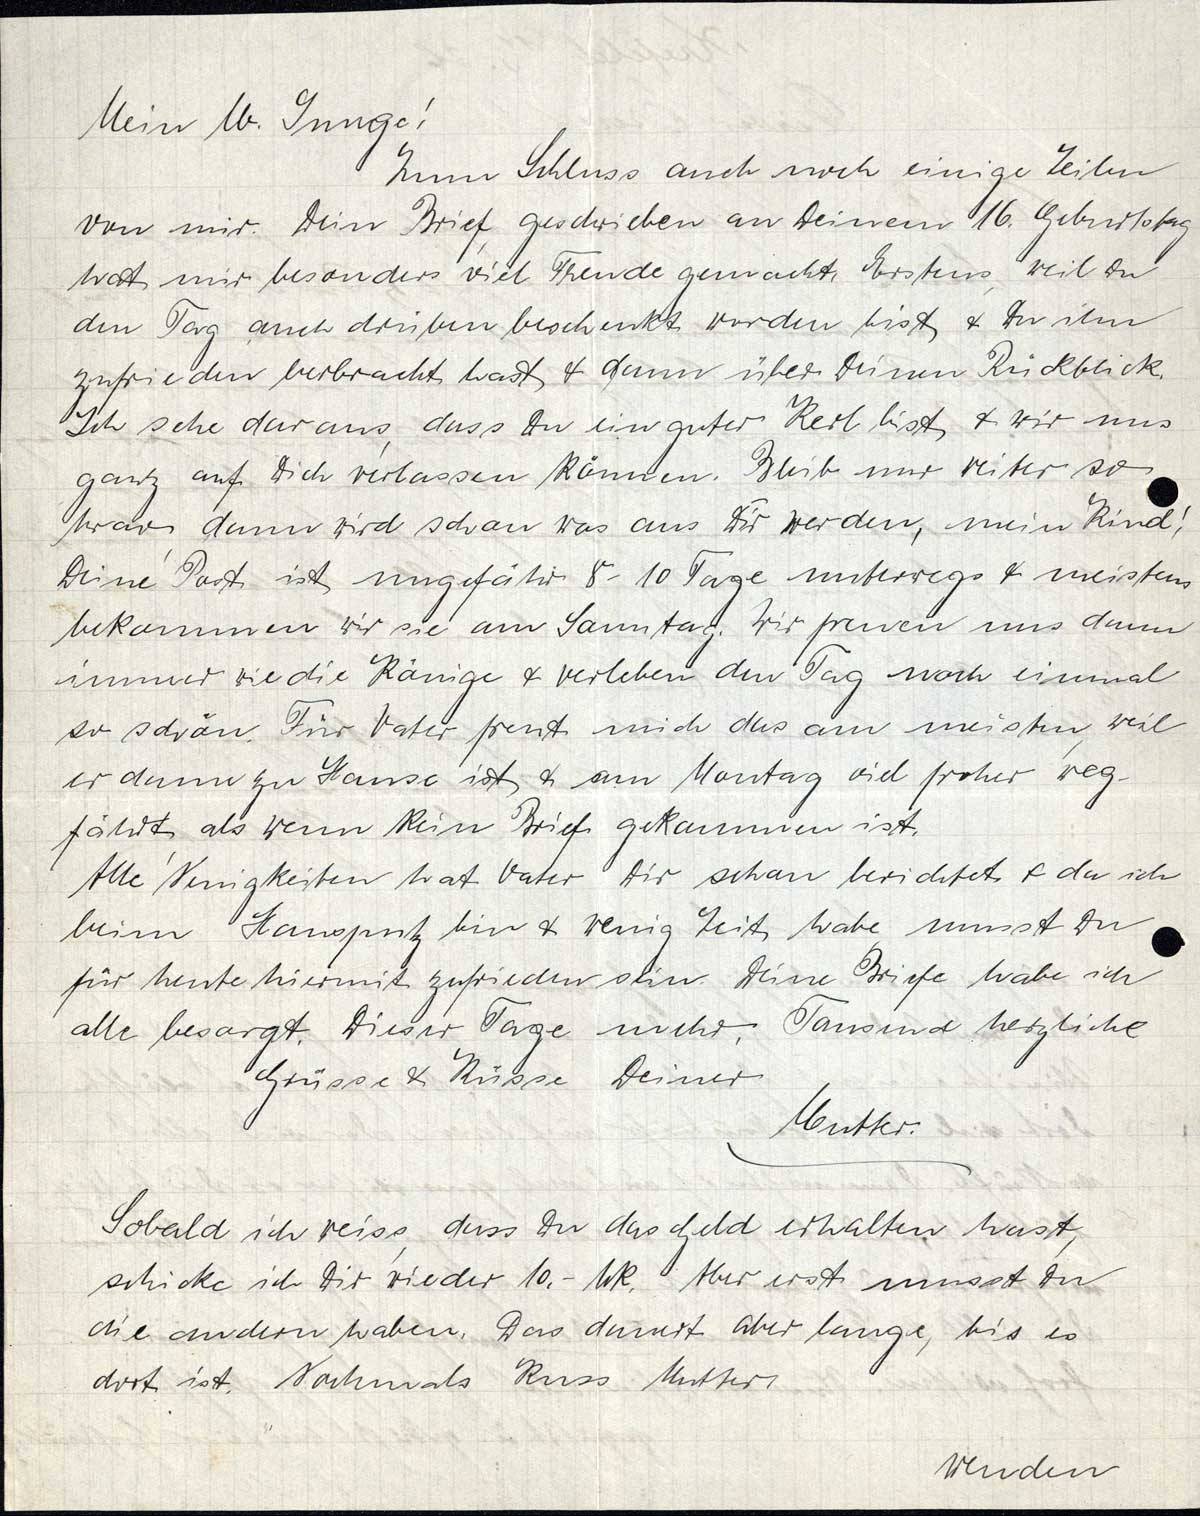 Mein lb. Junge!
Zum Schluss auch noch einige Zeilen
von mir. Dein Brief, geschrieben an Deinem 16. Geburtstag
hat mir besonders viel Freude gemacht. Erstens, weil Du
den Tag auch drüben beschenkt worden bist, & Du ihn
zufrieden verbracht hast, & dann über Deinen Rückblick.
Ich sehe daraus, dass Du ein guter Kerl bist, & wir uns
ganz auf Dich verlassen können. Bleib nur weiter so
brav dann wird schon was aus Dir werden, mein Kind!
Deine Post ist ungefähr 8-10 Tage unterwegs & meistens
bekommen wir sie am Sonntag. Wir freuen uns dann
immer wie die Könige & verleben den Tag noch einmal
so schön. Für Vater freut mich das am meisten, weil
er dann zu Hause ist, & am Montag viel froher weg-
fährt, als wenn kein Brief gekommen ist.
Alle Neuigkeiten hat Vater Dir schon berichtet & da ich
beim Hausputz bin & wenig Zeit habe musst Du
für heute hiermit zufrieden sein. Deine Briefe habe ich
alle besorgt. Dieser Tage mehr. Tausend herzliche
Grüsse & Küsse Deiner
Mutter.
Sobald ich weiss, dass Du das Geld erhalten hast,
schicke ich Dir wieder 10.- Mk. Aber erst musst Du
die andern haben. Das dauert aber lange, bis es
dort ist. Nochmals Kuss Mutter.
wenden